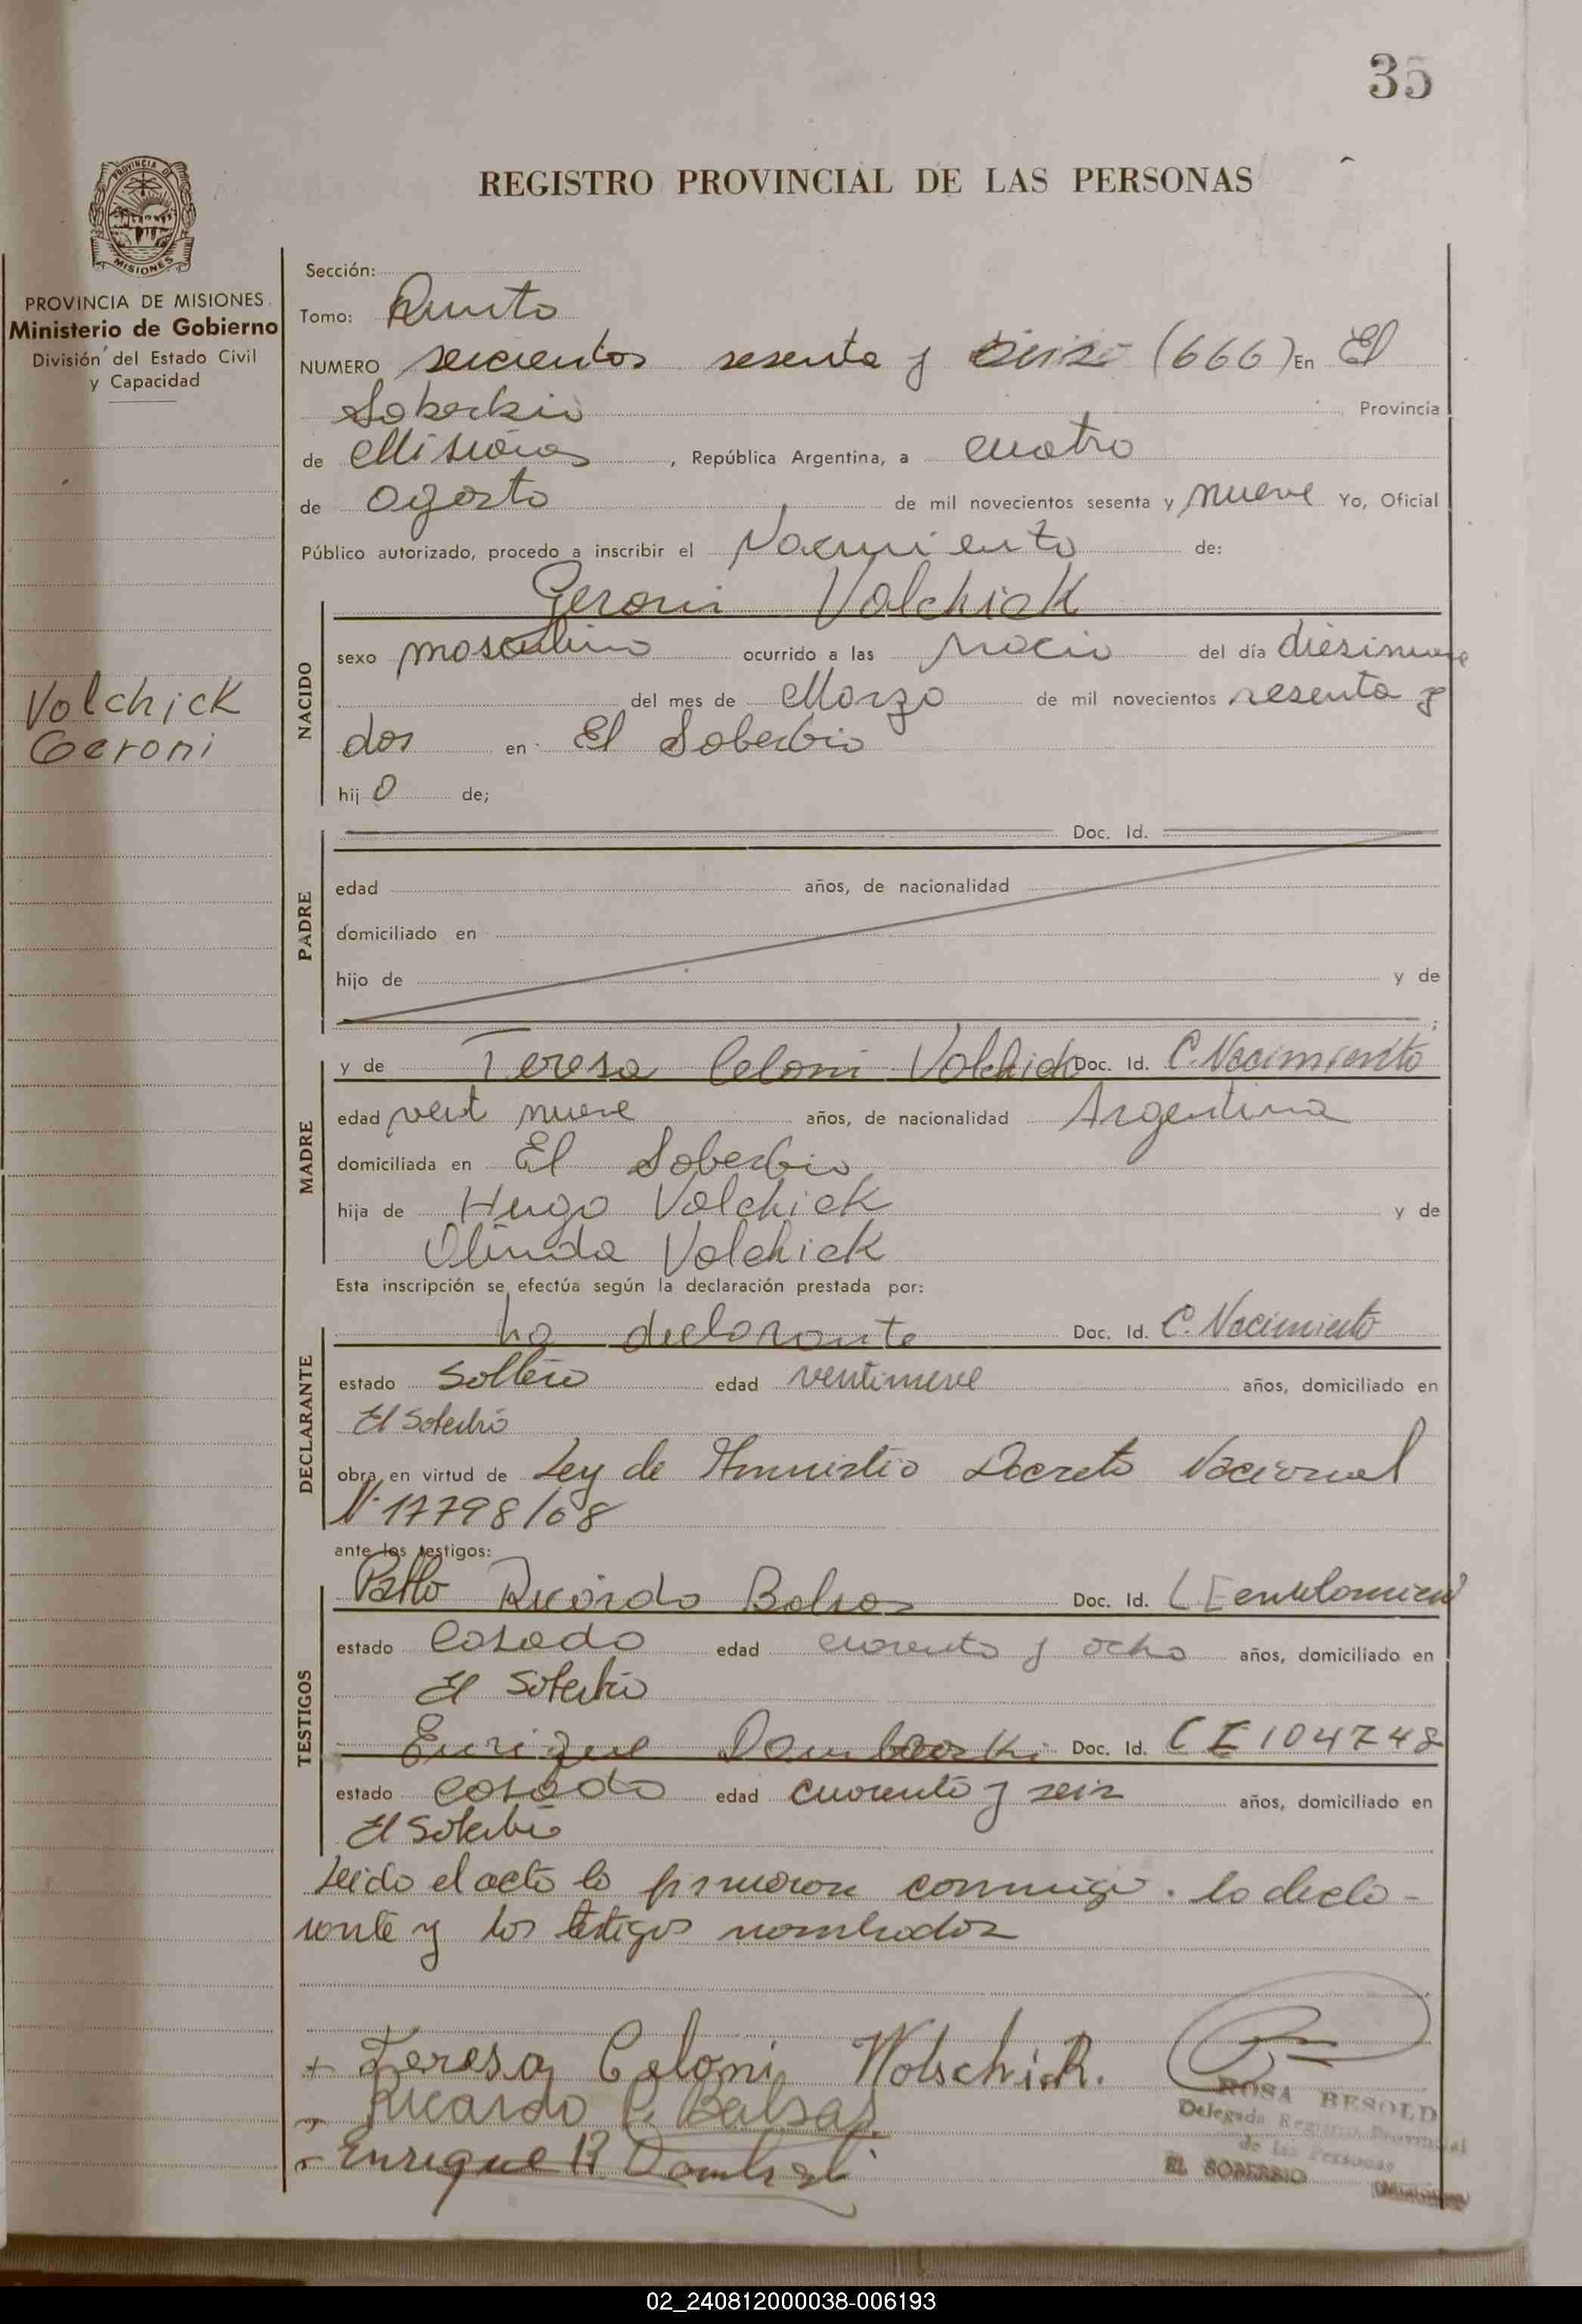 35
REGISTRO PROVINCIAL DE LAS PERSONAS
PROVINCIA DE MISIONES
MISIONES
PROVINCIA DE MISIONES
Ministerio de Gobierno
División del Estado Civil
y Capacidad
Volchick
Geroni
Sección:
Tomo: Quinto
NUMERO seicientos sesenta y seis (666) En El
Soberbio Provincia
de Misiones, República Argentina, a cuatro
de agosto de mil novecientos sesenta y nueve Yo, Oficial
Público autorizado, procedo a inscribir el Nacimiento de:
NACIDO
Geroni Volchick
sexo masculino ocurrido a las del día diesinueve
del mes de Marzo de mil novecientos sesenta y
dos en El Soberbio
hij o de;
PADRE
Doc. Id.
edad años, de nacionalidad
domiciliado en
hijo de y de
;
MADRE
y de Teresa Celoni Volchick Doc. Id. C. Nacimiento
edad veit nueve años, de nacionalidad Argentina
domiciliada en El Soberbio
hija de Hugo Volchick y de
Olinda Volchick
Esta inscripción se efectúa según la declaración prestada por:
DECLARANTE
La declarante Doc. Id. C. Nacimiento
estado soltera edad ventinueve años, domiciliado en
El Soberbio
obra en virtud de Ley de Amnistia Decreto Nacional
N° 17798/68
ante los testigos:
TESTIGOS
Pablo Ricardo Balsas Doc. Id. LE
estado casado edad cuarenta y ocho años, domiciliado en
El Soberbio
Enrique Doc. Id. CI 104748
estado casado edad cuarenta y seis años, domiciliado en
El Soberbio
Leido el acta la firmaron conmigo. la decla-
rante y los testigos nombrados
+ Teresa Celoni Wolschick.
Ricardo P. Balsas
Enrique
ROSA BESOLD
Delegada Registro Provincial
de las Personas
EL SOBERBIO (Misiones)
02_240812000038-006193